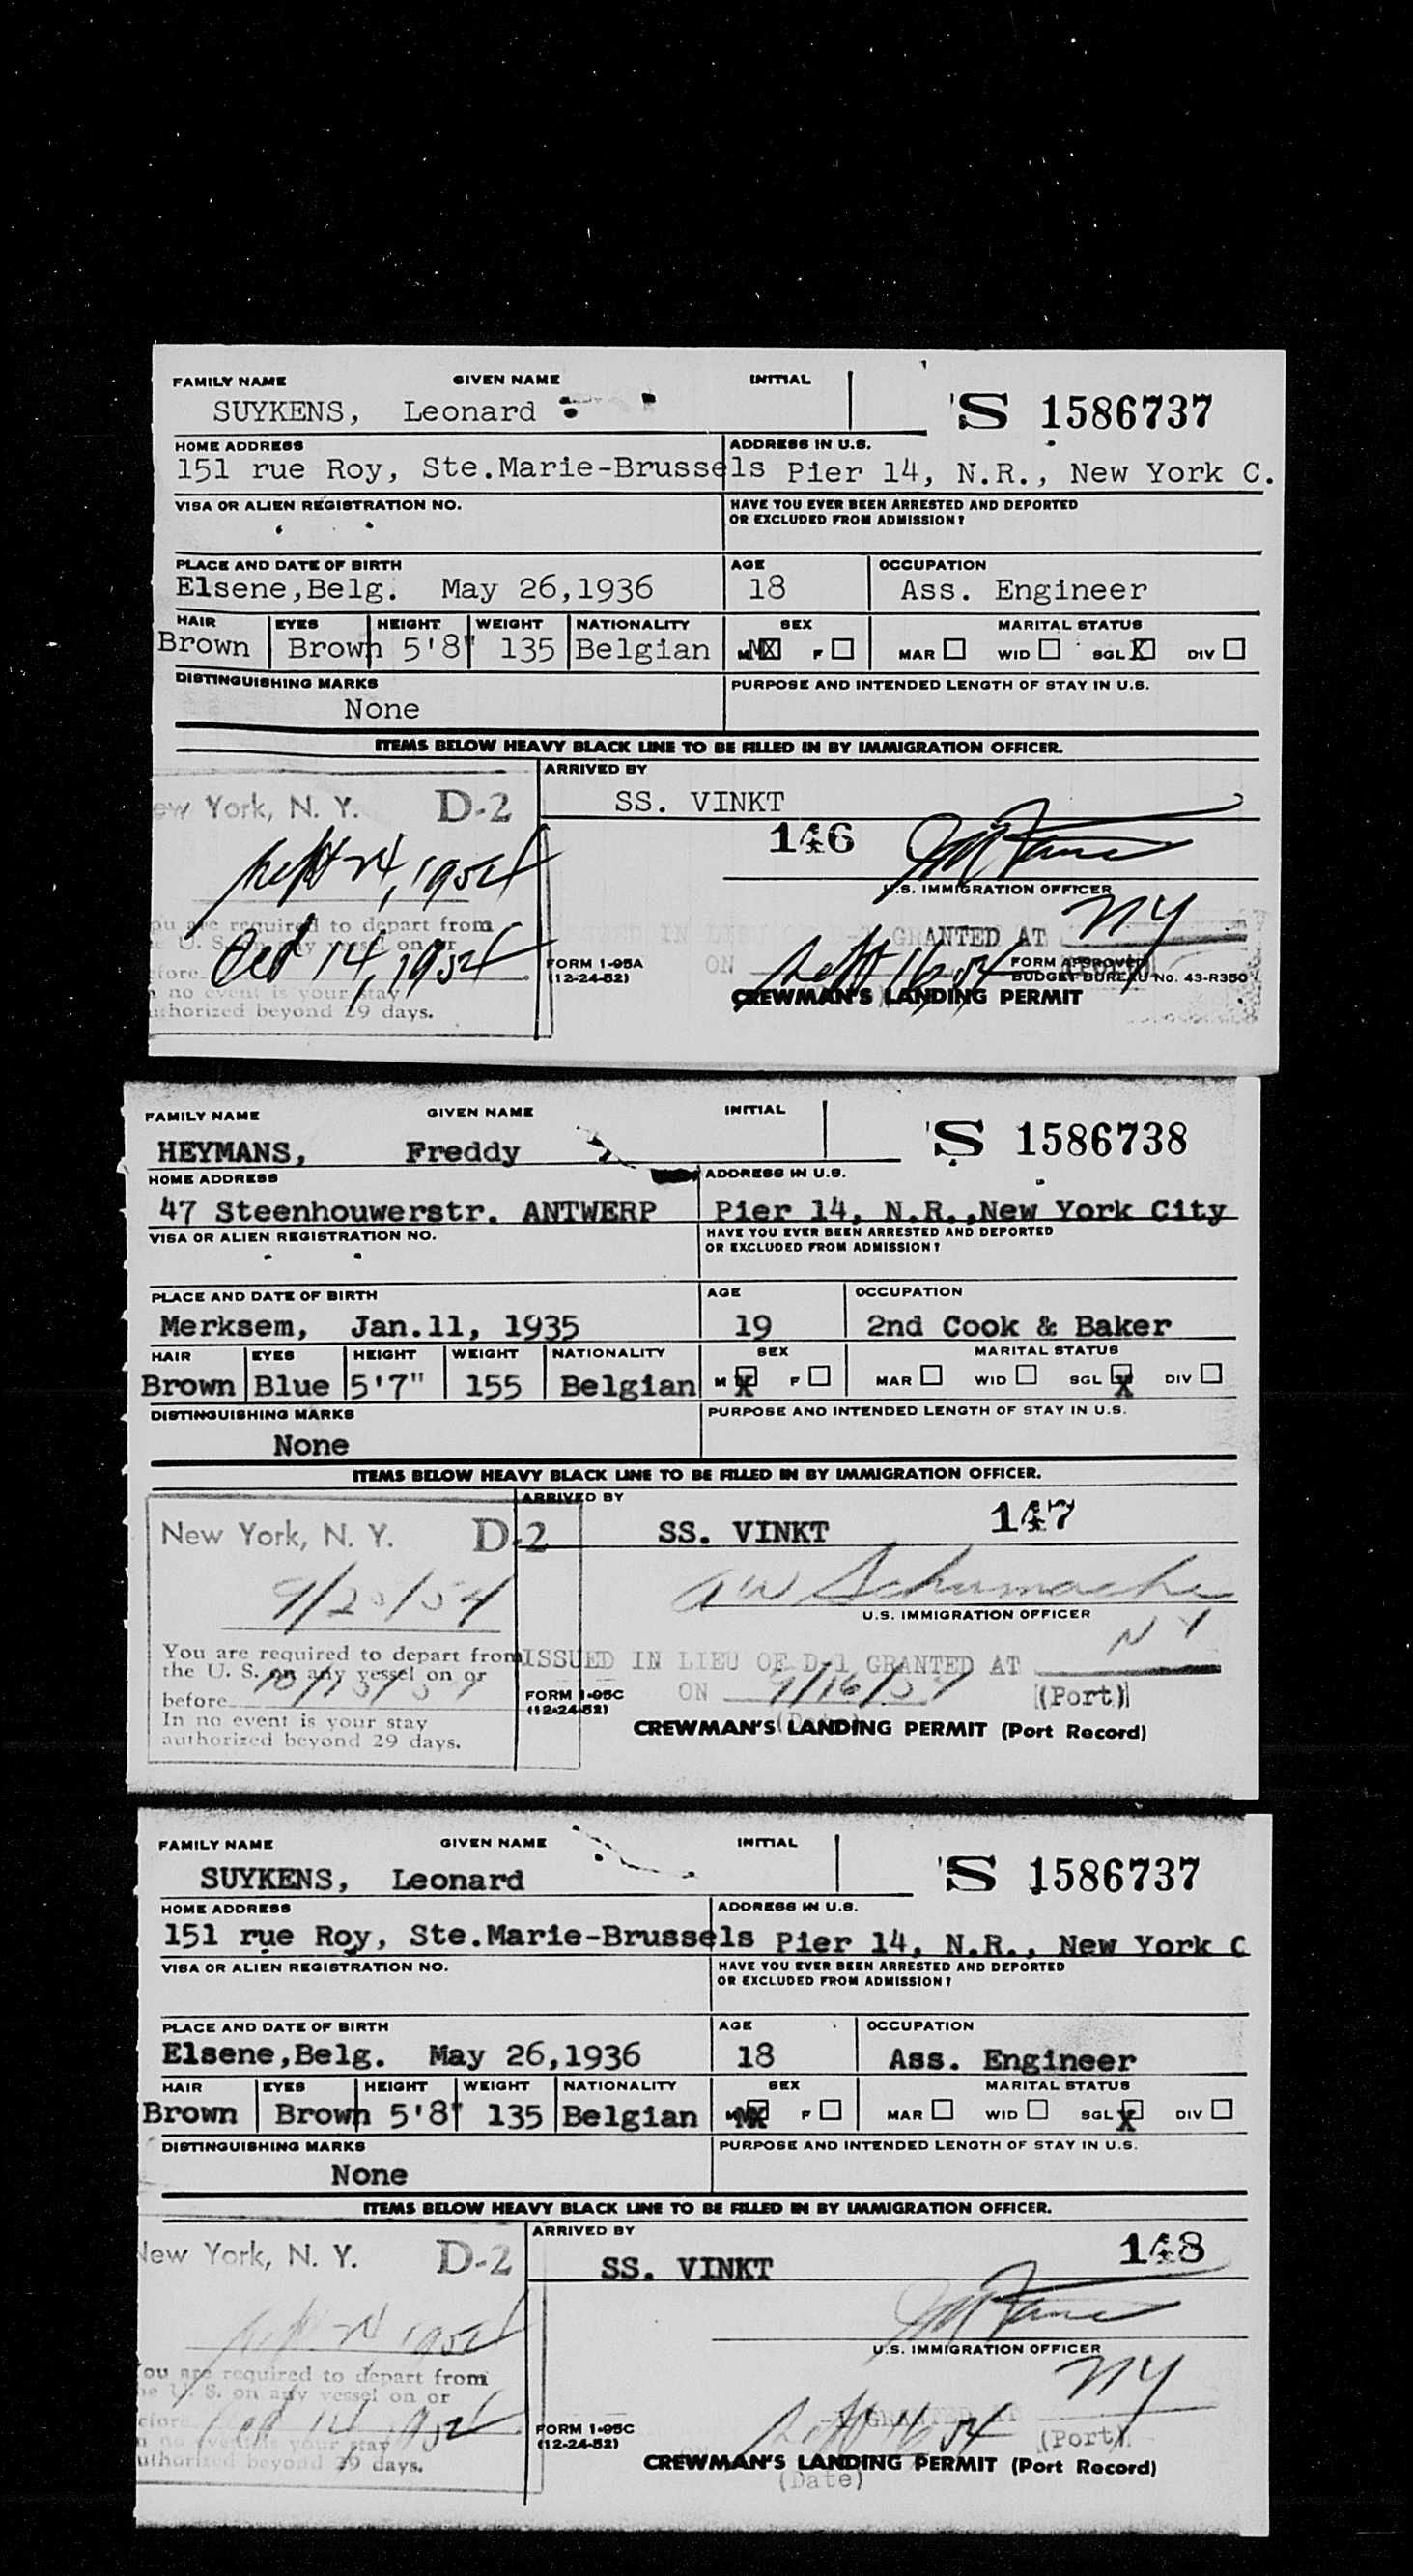 FAMILY NAME GIVEN NAME INITIAL
SUYKENS, Leonard S 1586737
HOME ADDRESS ADDRESS IN U.S.
151 rue Roy, Ste.Marie-Brussels Pier 14, N.R., New York C.
VISA OR ALIEN REGISTRATION NO. HAVE YOU EVER BEEN ARRESTED AND DEPORTED
OR EXCLUDED FROM ADMISSION?
PLACE AND DATE OF BIRTH AGE OCCUPATION
Elsene,Belg. May 26,1936 18 Ass. Engineer
HAIR EYES HEIGHT WEIGHT NATIONALITY SEX MARITAL STATUS
Brown Brown 5'8" 135 Belgian M X F MAR WID SGL X DIV
DISTINGUISHING MARKS PURPOSE AND INTENDED LENGTH OF STAY IN U.S.
None
ITEMS BELOW HEAVY BLACK LINE TO BE FILLED IN BY IMMIGRATION OFFICER.
ARRIVED BY
ew York, N. Y. D-2 SS. VINKT
146
Sept 24, 1954
U.S. IMMIGRATION OFFICER
ou are required to depart from NY
e U. S. on any vessel on or GRANTED AT
fore Oct 14, 1954 FORM I-95A ON Sept 16 54 FORM APPROVED
(12-24-52) BUDGET BUREAU No. 43-R350
n no event is your stay CREWMAN'S LANDING PERMIT
uthorized beyond 29 days.
FAMILY NAME GIVEN NAME INITIAL
HEYMANS, Freddy S 1586738
HOME ADDRESS ADDRESS IN U.S.
47 Steenhouwerstr. ANTWERP Pier 14, N.R.,New York City
VISA OR ALIEN REGISTRATION NO. HAVE YOU EVER BEEN ARRESTED AND DEPORTED
OR EXCLUDED FROM ADMISSION?
PLACE AND DATE OF BIRTH AGE OCCUPATION
Merksem, Jan.11, 1935 19 2nd Cook & Baker
HAIR EYES HEIGHT WEIGHT NATIONALITY SEX MARITAL STATUS
Brown Blue 5'7" 155 Belgian M X F MAR WID SGL X DIV
DISTINGUISHING MARKS PURPOSE AND INTENDED LENGTH OF STAY IN U.S.
None
ITEMS BELOW HEAVY BLACK LINE TO BE FILLED IN BY IMMIGRATION OFFICER.
ARRIVED BY
New York, N. Y. D-2 SS. VINKT 147
AW Schumacher
U.S. IMMIGRATION OFFICER
NY
You are required to depart from ISSUED IN LIEU OF D-1 GRANTED AT
the U. S. on any vessel on or
before FORM I-95C ON 9/16/54 (Port)
(12-24-52)
In no event is your stay CREWMAN'S LANDING PERMIT (Port Record)
authorized beyond 29 days.
FAMILY NAME GIVEN NAME INITIAL
SUYKENS, Leonard S 1586737
HOME ADDRESS ADDRESS IN U.S.
151 rue Roy, Ste.Marie-Brussels Pier 14, N.R., New York C
VISA OR ALIEN REGISTRATION NO. HAVE YOU EVER BEEN ARRESTED AND DEPORTED
OR EXCLUDED FROM ADMISSION?
PLACE AND DATE OF BIRTH AGE OCCUPATION
Elsene,Belg. May 26,1936 18 Ass. Engineer
HAIR EYES HEIGHT WEIGHT NATIONALITY SEX MARITAL STATUS
Brown Brown 5'8" 135 Belgian M X F MAR WID SGL X DIV
DISTINGUISHING MARKS PURPOSE AND INTENDED LENGTH OF STAY IN U.S.
None
ITEMS BELOW HEAVY BLACK LINE TO BE FILLED IN BY IMMIGRATION OFFICER.
ARRIVED BY
New York, N. Y. D-2 SS. VINKT 148
Sept 24 1954
U.S. IMMIGRATION OFFICER
ou are required to depart from NY
he U. S. on any vessel on or GRANTED AT
efore Oct 14 1954 FORM I-95C Sept 16 54 (Port)
(12-24-52)
n no event is your stay CREWMAN'S LANDING PERMIT (Port Record)
uthorized beyond 29 days. (Date)